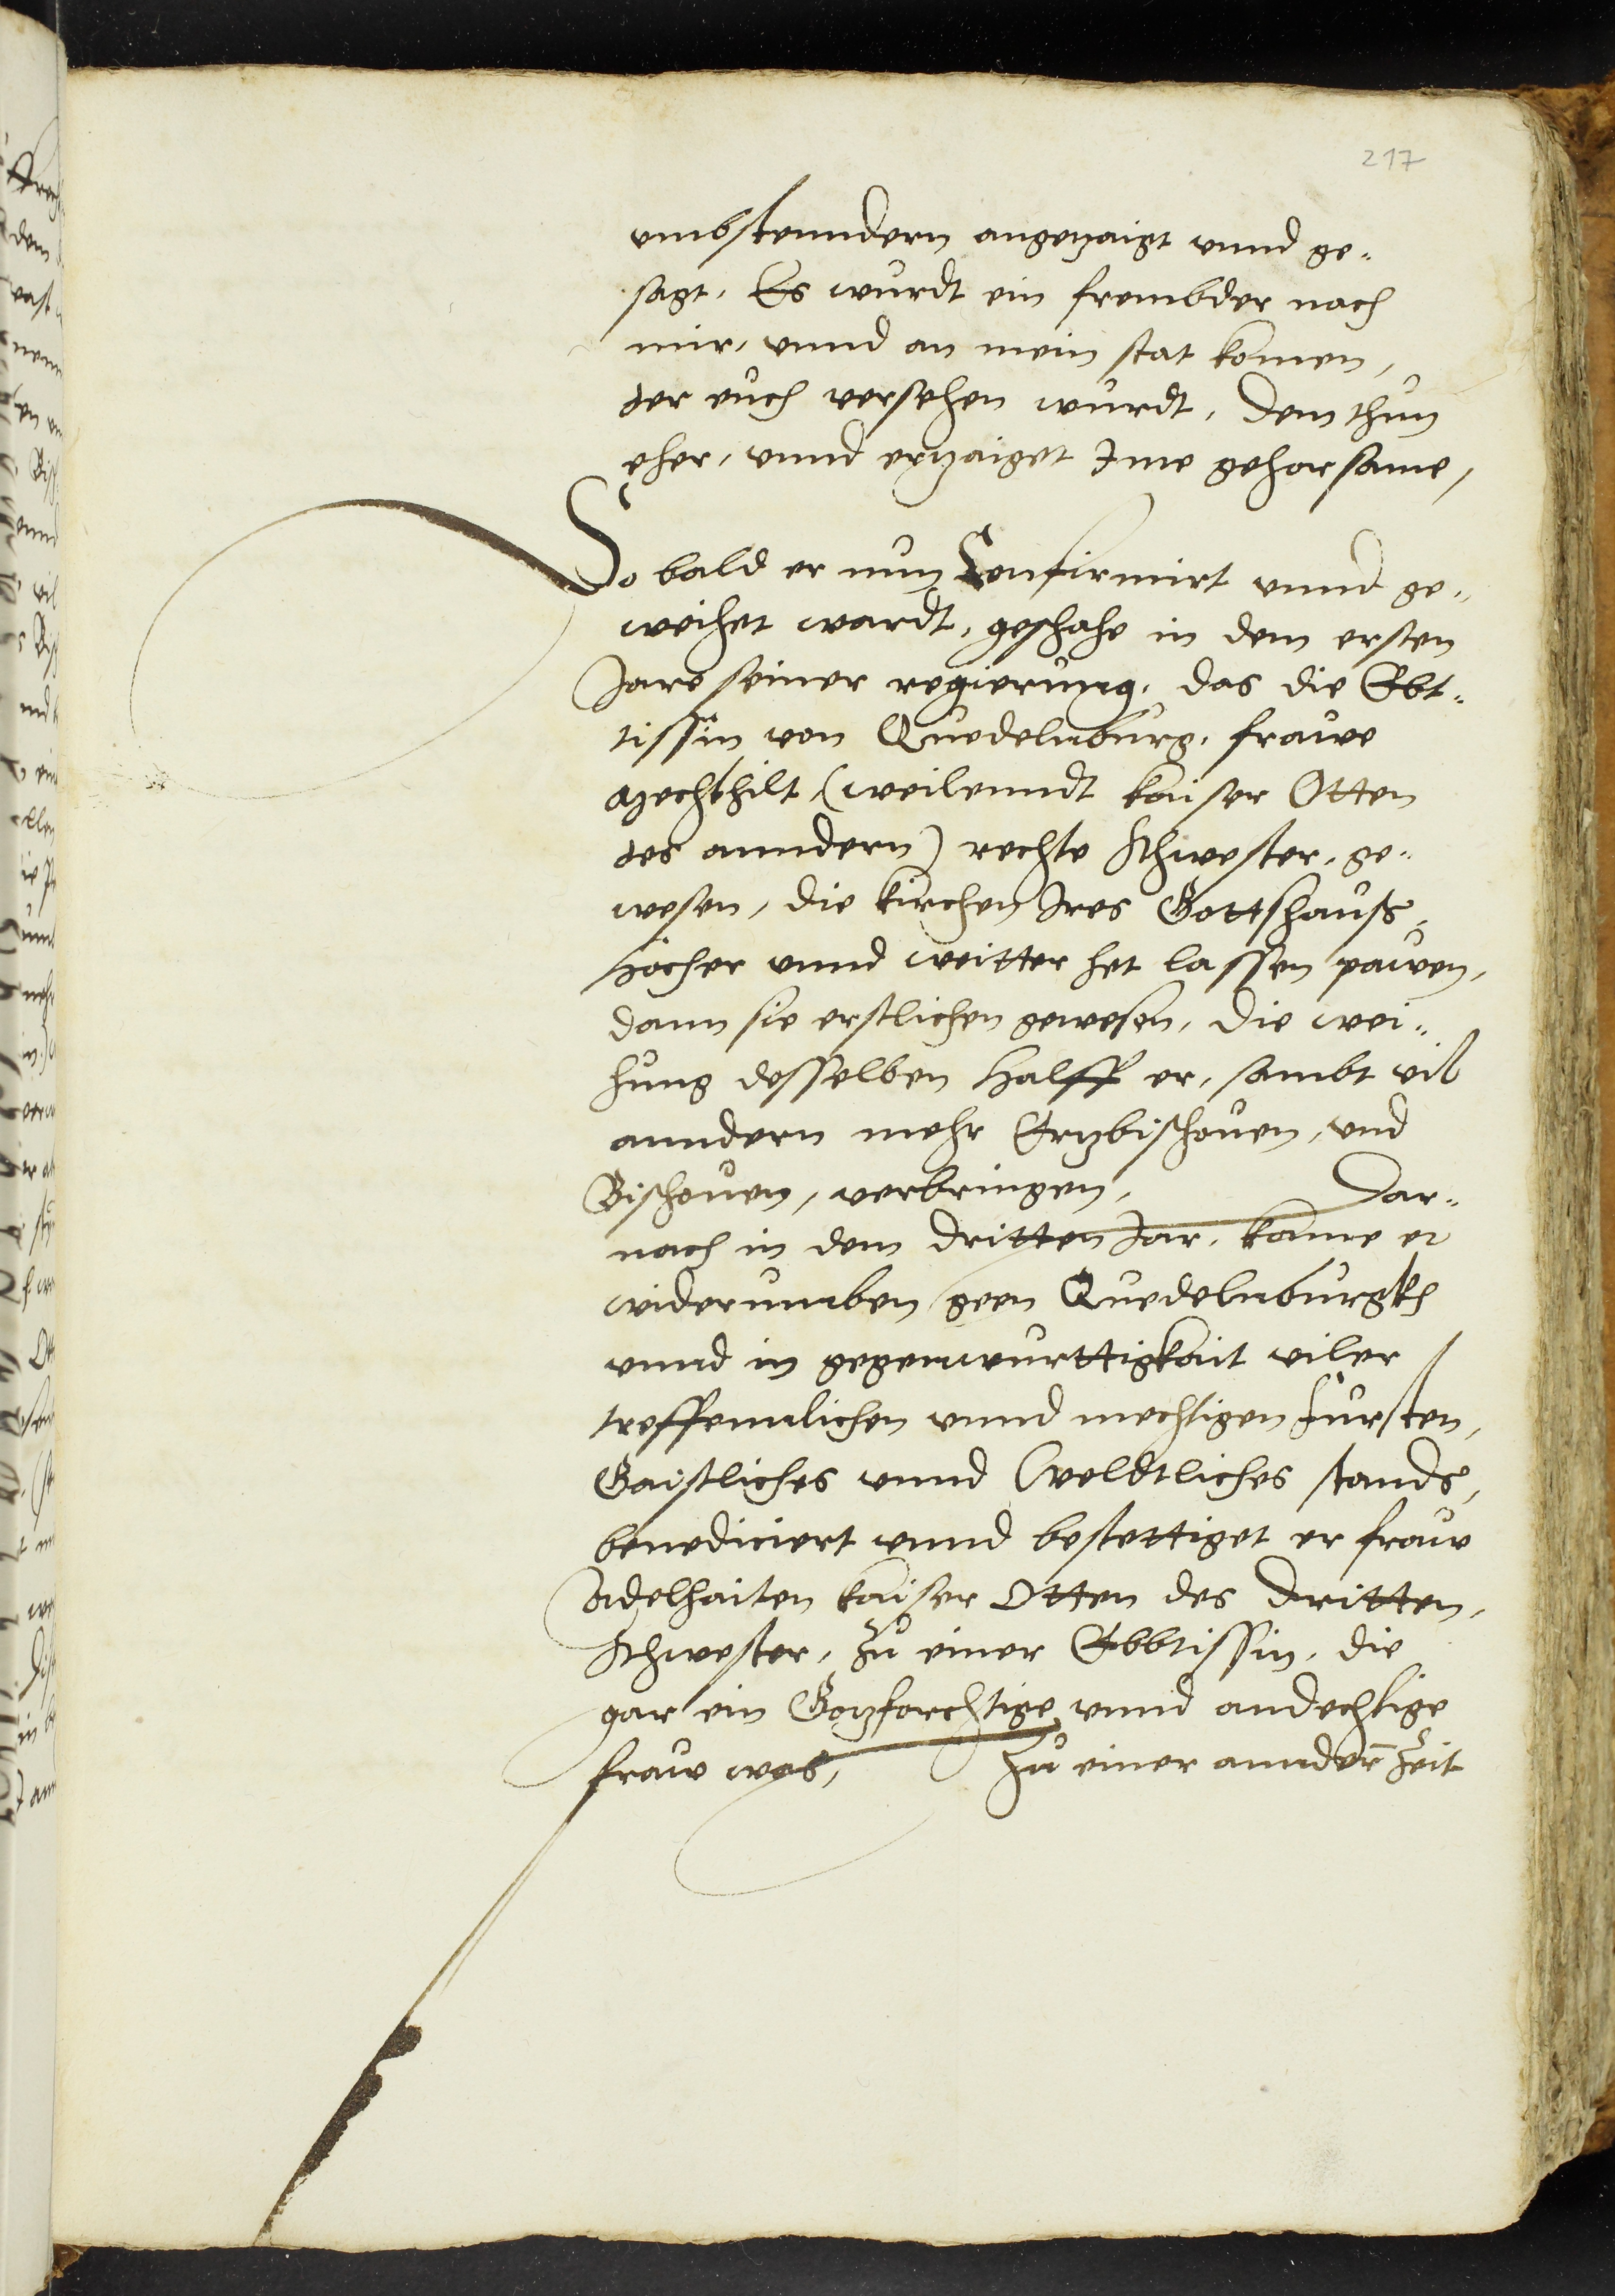 217
umbstenndern angezaigt unnd ge-
sagt, Es wurdt ein frembder nach
mir, unnd an mein stat komen,
der euch versehen wurdt, dem thun
eher, unnd erzaiget Ime gehorsame,
So bald er nun Confirmirt unnd ge-
weihet wardt, geschahe in dem ersten
Jare seiner regierung, das die Ebt-
tissin von Quedelnburg, frawe
Mechthilt (weilenndt kaiser Otten
des anndern) rechte Schwester, ge-
wesen, die kirchen Ires Gottshauss,
höcher unnd weitter het lassen pawen,
dann sie erstlichen gewesen, die wei-
hung desselben halff er, sambt vil
anndern mehr Ertzbischouen, und
Bischouen, verbringen, Dar-
nach in dem dritten Jar, kame er
widerumben geen Quedelnburgkh
unnd in gegenwurttigkait viler
treffennlichen unnd mechtigen Fursten,
Gaistliches unnd Weldtliches stands,
benediciert unnd bestettiget er fraw
Adelhaiten kaiser Otten des dritten,
Schwester, zu einer Ebbtissin, die
gar ein Gotzforchtige unnd andechtige
fraw was, Zu einer annder̄ Zeit